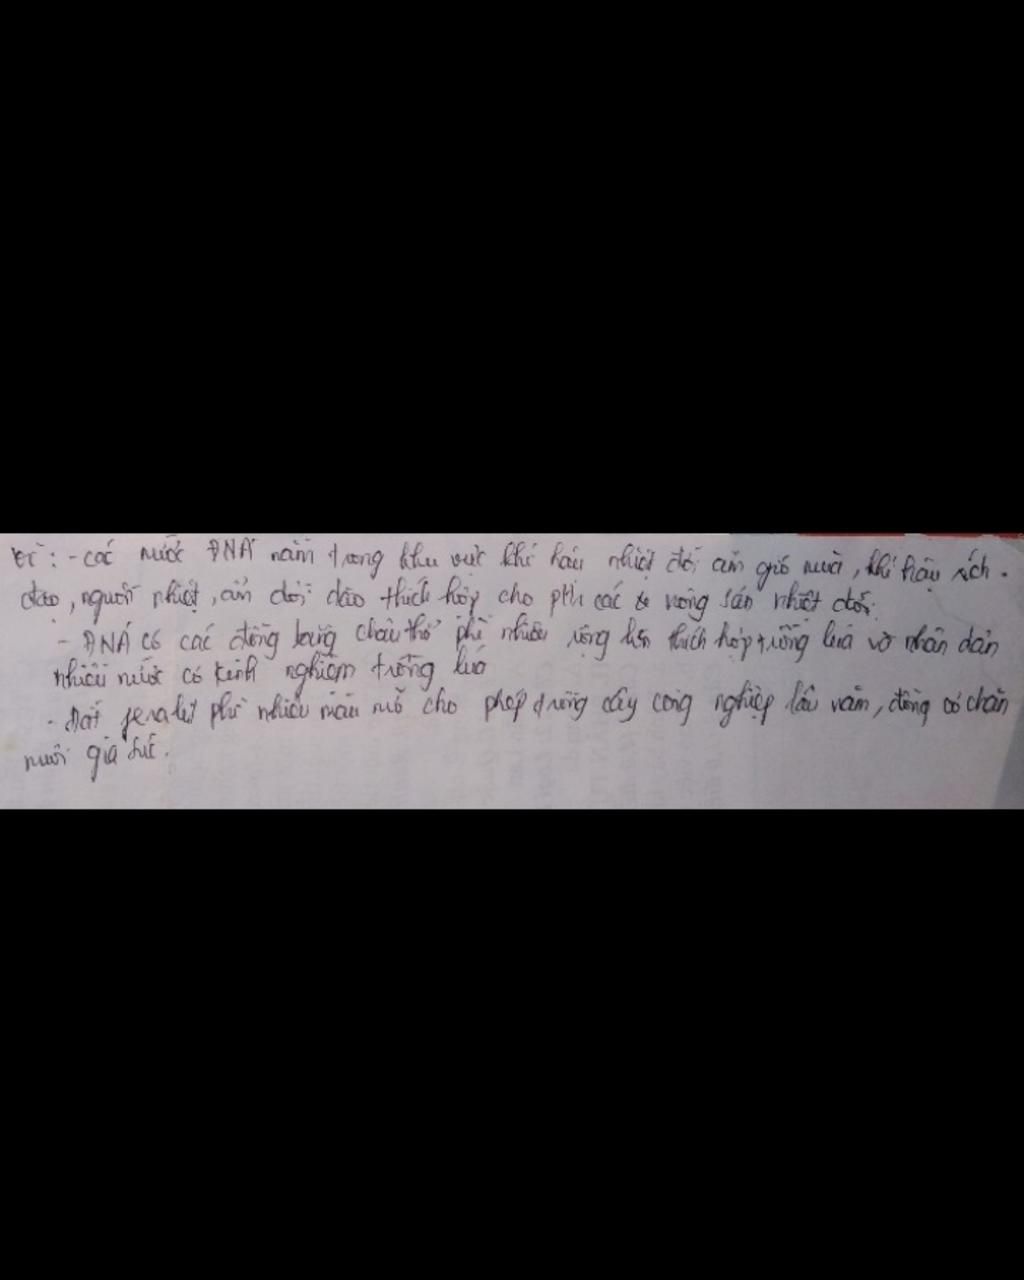 vì : - các nước ĐNÁ nằm trong khu vực khí hậu nhiệt đới ẩm gió mùa, khí hậu xích
đạo, nguồn nhiệt, ẩm dồi dào thích hợp cho pth các nông sản nhiệt đới.
- ĐNÁ có các đồng bằng châu thổ phì nhiêu rộng lớn thích hợp trồng lúa và nhân dân
nhiều nước có kinh nghiệm trồng lúa
- Đất feralit phì nhiêu màu mỡ cho phép trồng cây công nghiệp lâu năm, đồng cỏ chăn
nuôi gia súc.